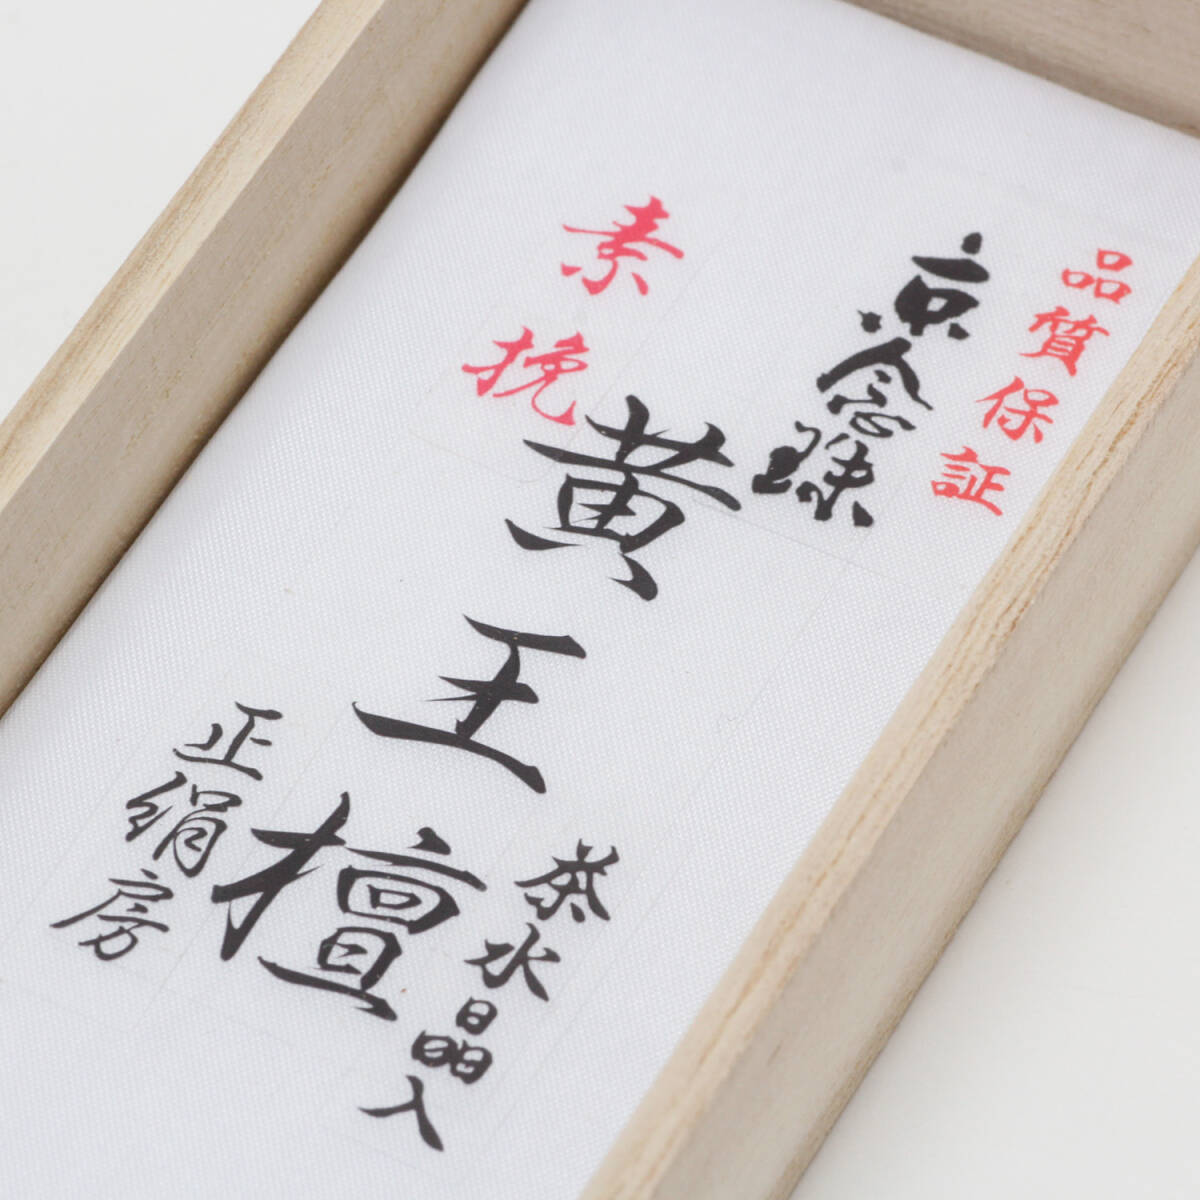 品質保証
京念珠
素挽
黄王檀
茶水晶入
正絹房